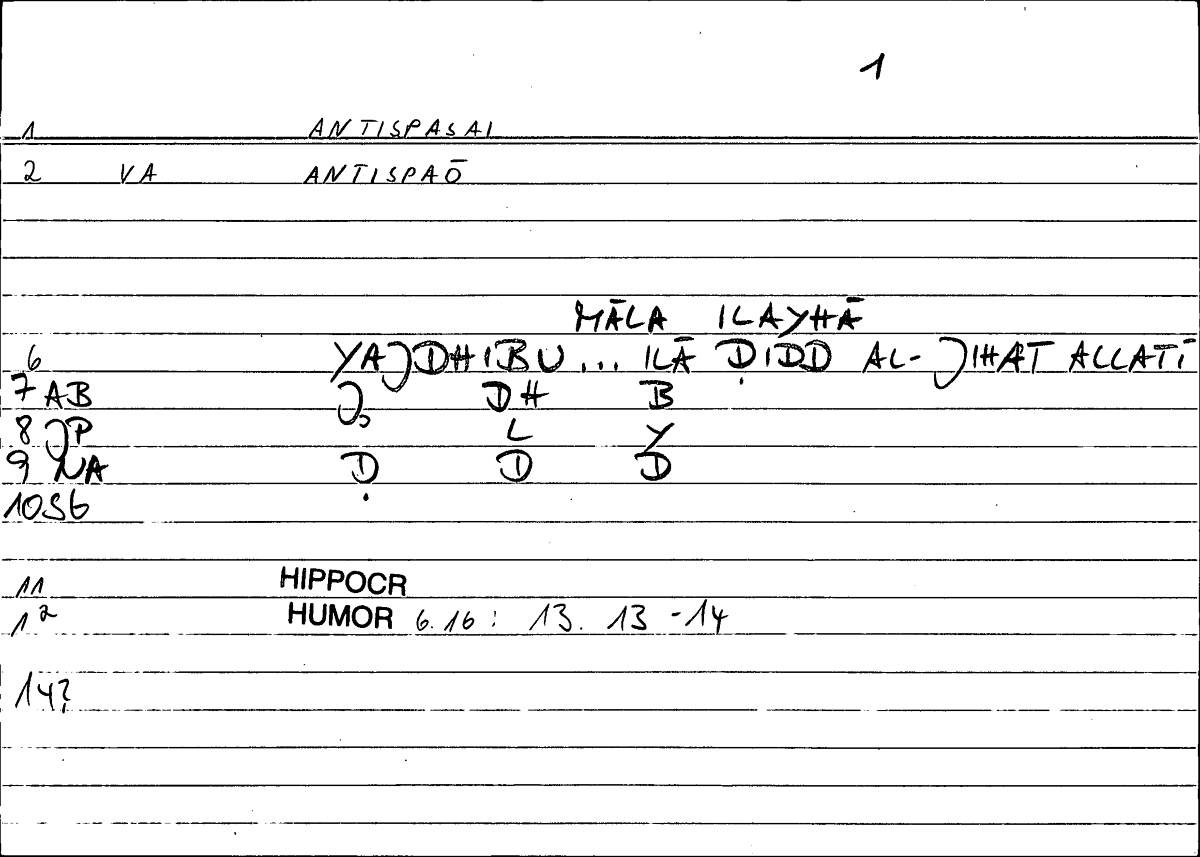 1
1 ANTISPASAI
2 VA ANTISPAŌ
MĀLA ILAYHĀ
6 YAJDHIBU... ILĀ ḌIDD AL-JIHAT ALLATĪ
7 AB J, DH B
8 JP L Y
9 NA Ḍ D D
10 SG
11 HIPPOCR
12 HUMOR 6.16: 13. 13-14
14?